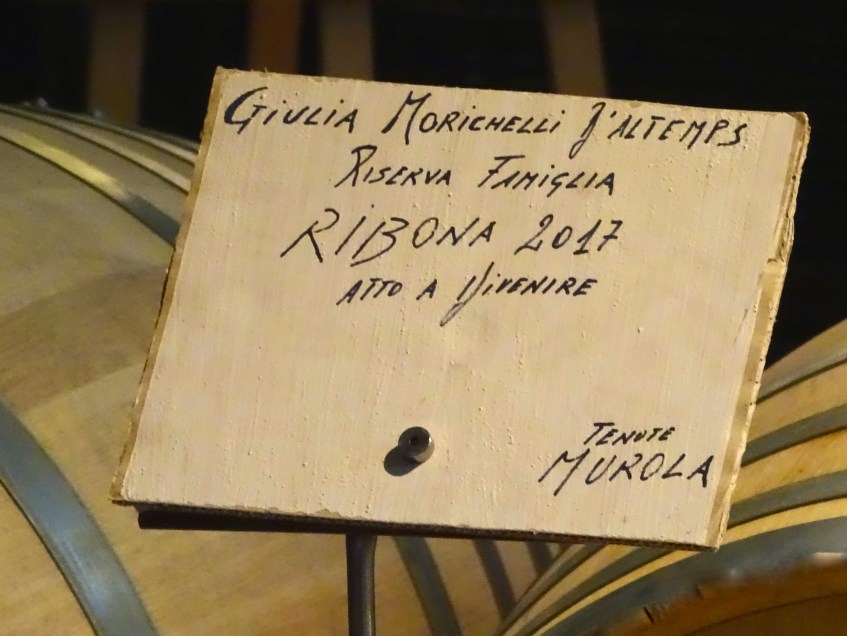 Giulia Morichelli D'Altemps
Riserva Famiglia
RIBONA 2017
atto a Divenire
Tenute
MUROLA